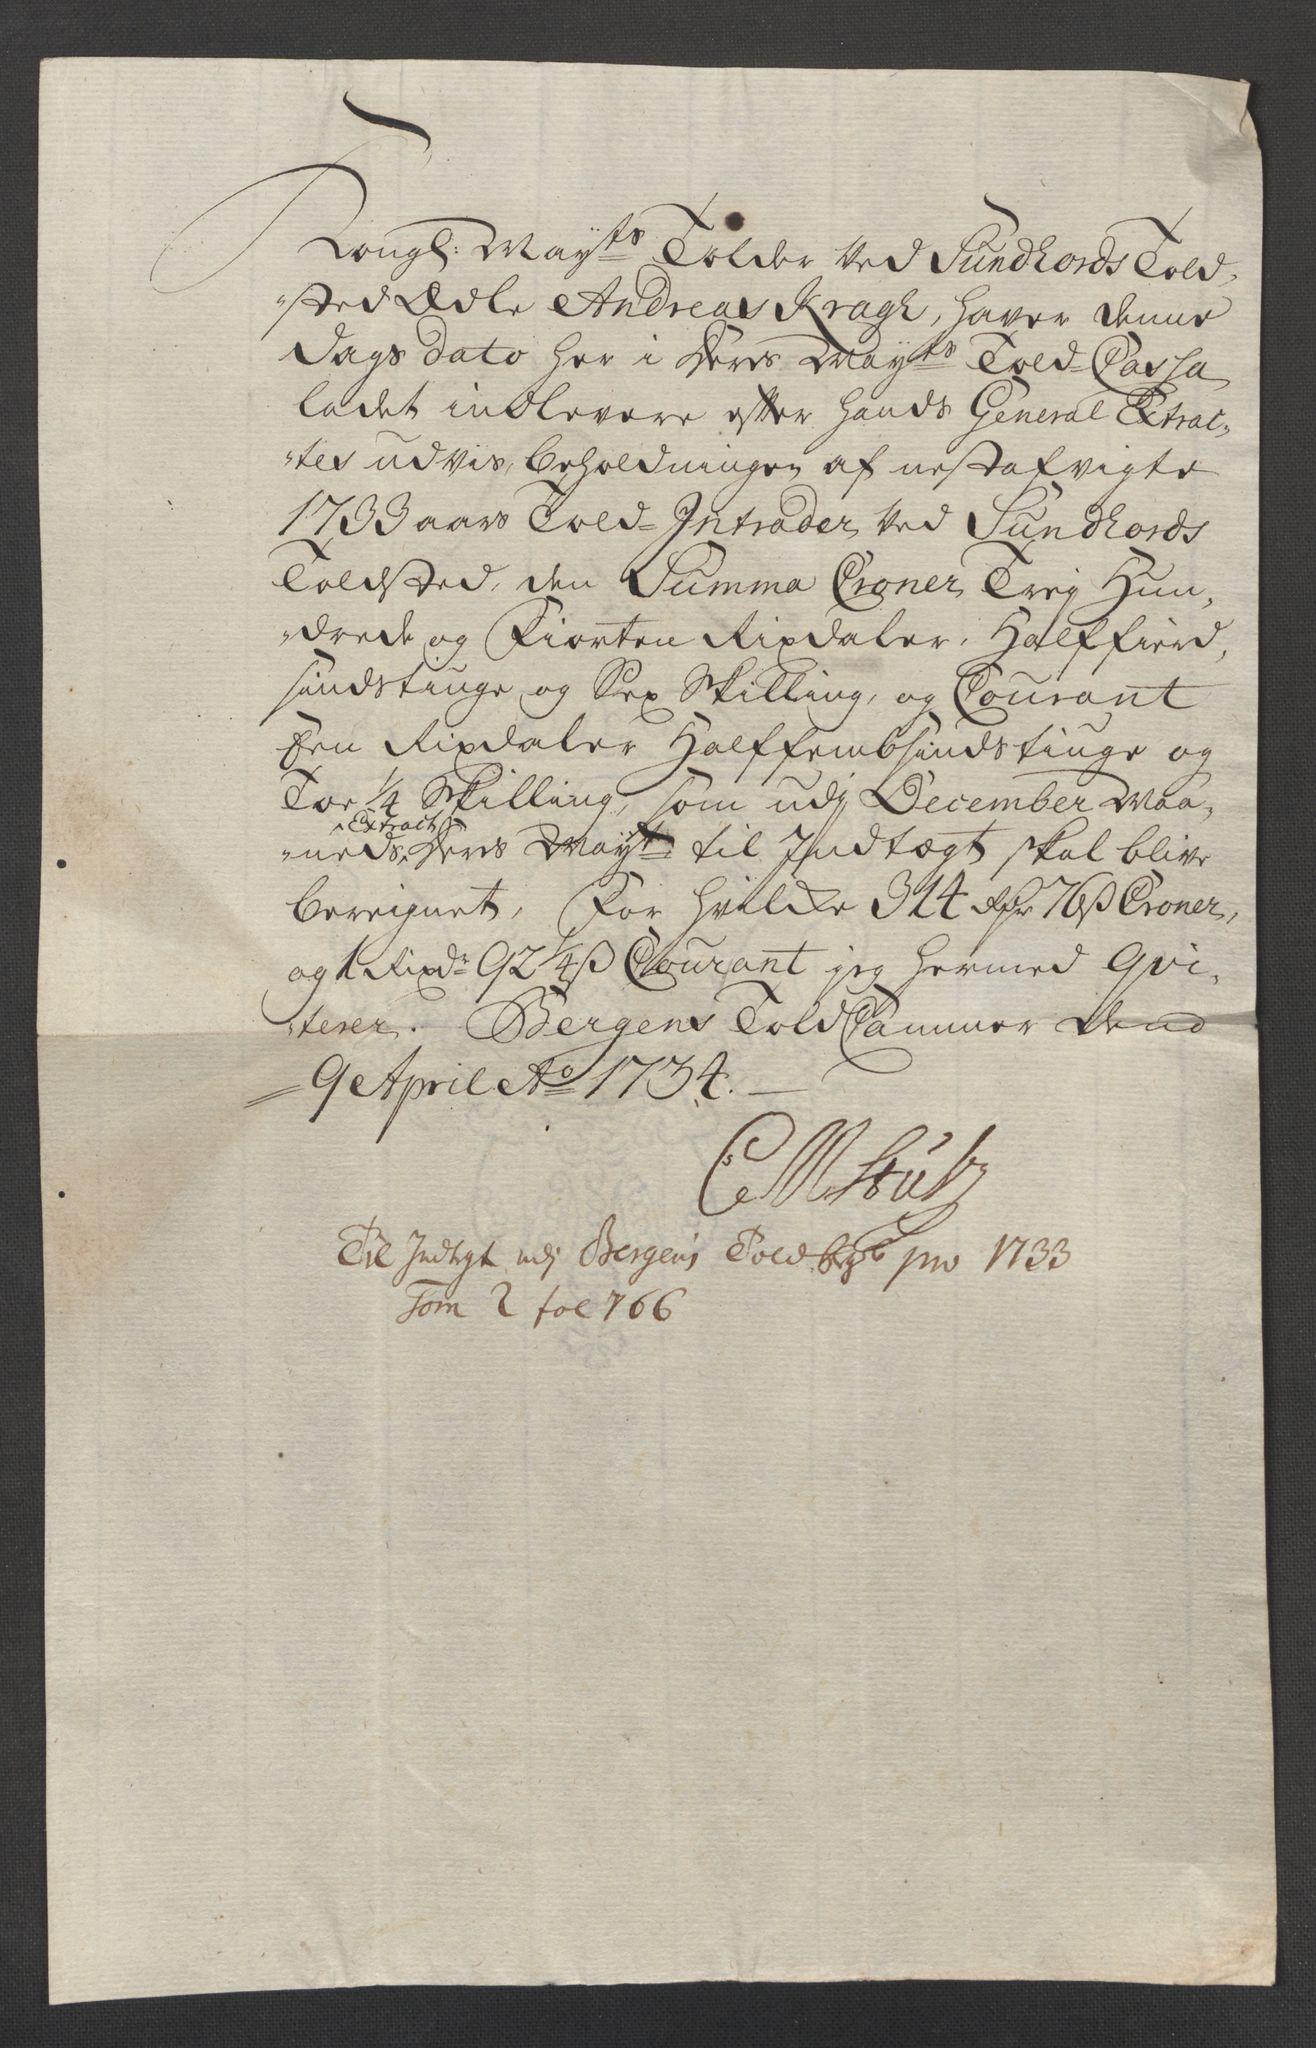 Kongl: Mayts Tolder ved Sundhords Told-
"sted Ædle Andreas Kragh, haver denne
dags dato her i Deres Mayts Told-Cassa
ladet indlevere efter hands General Extrac-
"tes udvis, beholdningen af nestafvigte
1733 aars Told-Intrader ved Sundhords
Toldsted, den Summa Croner Trej Hun-
"drede og Fiorten Rixdaler, Halffierd,
sindstiuge og Sex Skilling, og Courant
Een Rixdaler Halffembsindstiuge og
Toe 1/4 Skilling, som udj December Maa-
"neds Extract Deres Mayts til Indtægt skal blive
bereignet, For hvilcke 314 Rdr 76ß Croner,
og 1 Rixdr 92 1/4ß Courant jeg hermed qvi-
"terer. Bergens Told Cammer Dend
9 April Ao 1734.
CM Stub
Til Indtegt udj Bergens Told pro 1733
Tom 2 fol 766